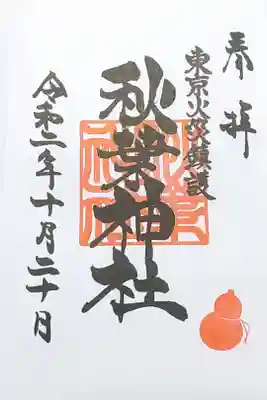 奉拝
東京火災鎮護
秋葉神社
令和二年十月二十日